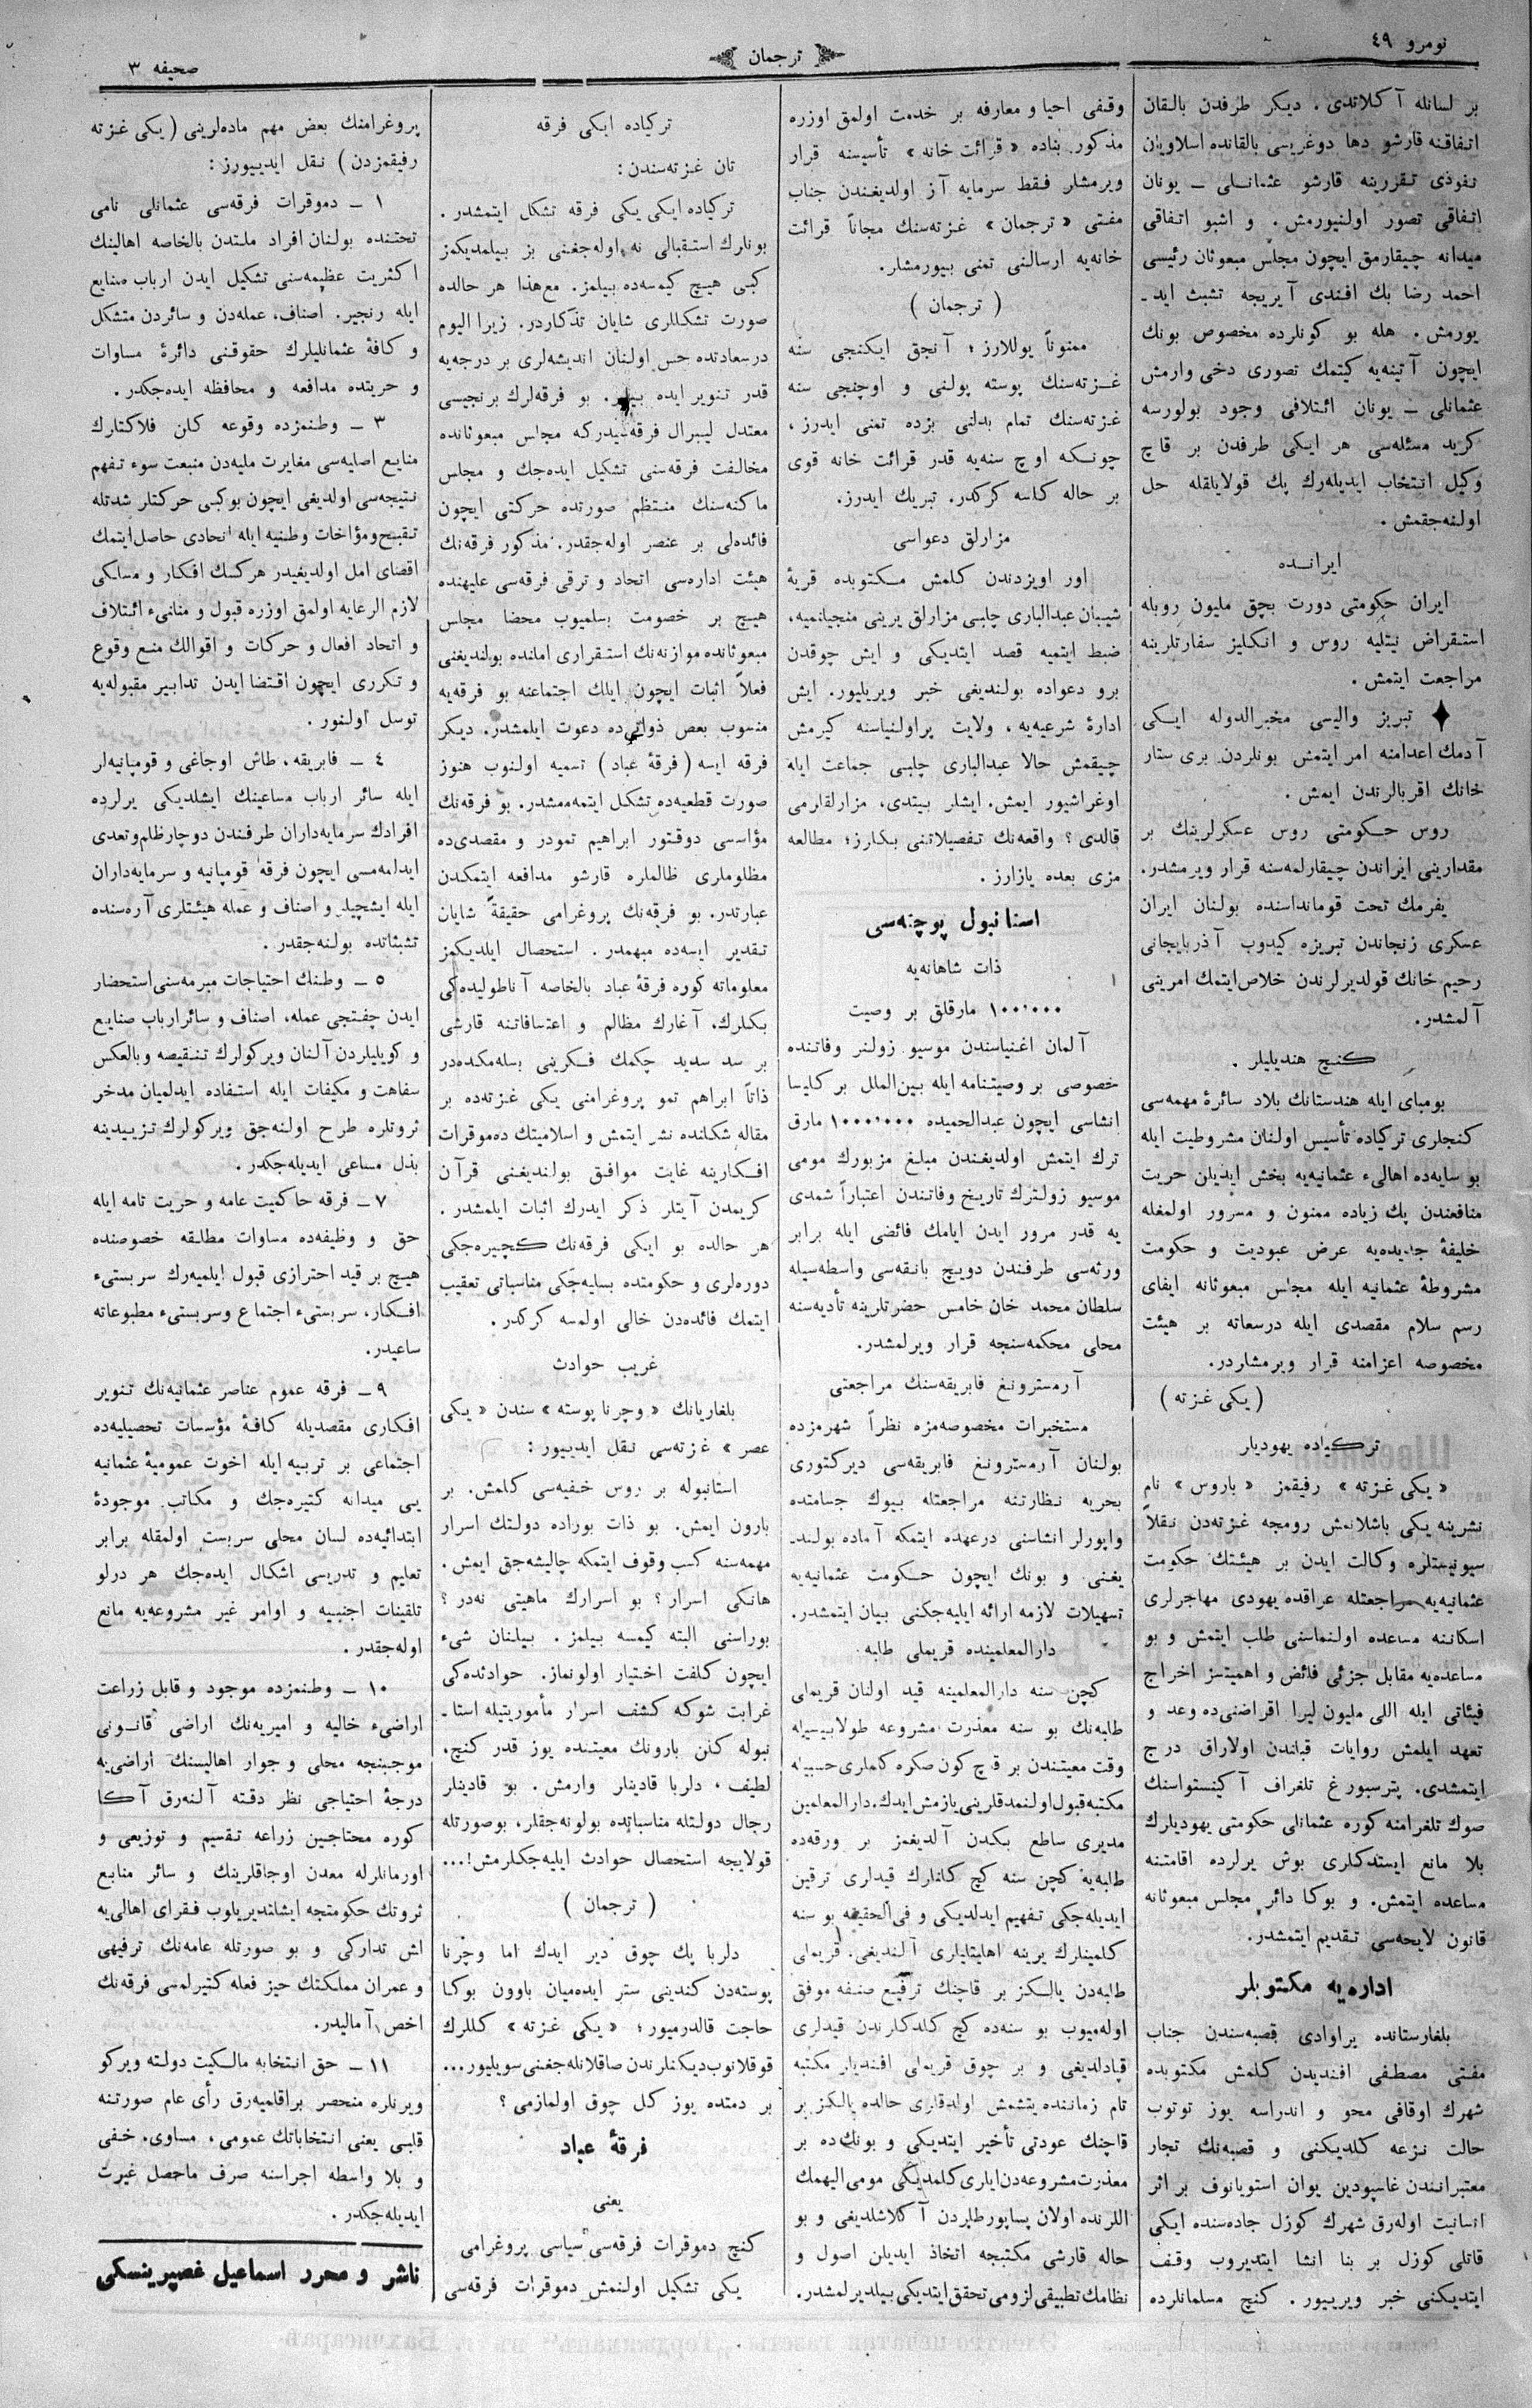 نومرو ٤٩
ترجمان
صحیفه ٣
بر لسانله آكلاتدی. دیكر طرفدن بالقان
اتفاقنه قارشو دها دوغریسی بالقانده اسلاویان
نفوذی تقررینه قارشو عثمانلی ــ یونان
اتفاقی تصور اولنیورمش. و اشبو اتفاقی
میدانه چیقارمق ایچون مجلس مبعوثان رئیسی
احمد رضا بك افندی آیریجه تشبث اید ـ
یورمش. هله بو كونلرده مخصوص بونك
ایچون آتینه‌یه كیتمك تصوری دخی وارمش
عثمانلی ــ یونان ائتلافی وجود بولورسه
كرید مسئله‌سی هر ایكی طرفدن بر قاچ
وكیل انتخاب ایدیله‌رك پك قولایلقله حل
اولنه‌جقمش.
ایرانــده
ایران حكومتی دورت بچق ملیون روبله
استقراض نیتلیه روس و انكلیز سفارتلرینه
مراجعت ایتمش.
تبریز والیسی مخبرالدوله ایكی
آدمك اعدامنه امر ایتمش بونلردن بری ستار
خانك اقربالرندن ایمش.
روس حكومتی روس عسكرلرینك بر
مقدارینی ایراندن چیقارلمه‌سنه قرار ویرمشدر.
یفرمك تحت قومانداسنده بولنان ایران
عسكری زنجاندن تبریزه كیدوب آذربایجانی
رحیم خانك قولدیرلرندن خلاص ایتمك امرینی
آلمشدر.
كنچ هندیلیلر.
بومبای ایله هندستانك بلاد سائرهٔ مهمه‌سی
كنجلری تركیاده تأسیس اولنان مشروطیت ایله
بو سایه‌ده اهالیء عثمانیه‌یه بخش ایدیلن حریت
منافعندن پك زیاده ممنون و مسرور اولمغله
خلیفهٔ جدیده‌یه عرض عبودیت و حكومت
مشروطهٔ عثمانیه ایله مجلس مبعوثانه ایفای
رسم سلام مقصدی ایله درسعاته بر هیئت
مخصوصه اعزامنه قرار ویرمشاردر.
(یكی غزته)
تركیاده یهودیلر
«یكی غزته» رفیقمز «باروس» نام
نشرینه یكی باشلانمش رومجه غزته‌دن نقلاً
سیونیستلره وكالت ایدن بر هیئتك حكومت
عثمانیه‌یه مراجعتله عراقده یهودی مهاجرلری
اسكاننه مساعده اولنماسنی طلب ایتمش و بو
مساعده‌یه مقابل جزئی فائض و اهمیتسز اخراج
فیئاتی ایله اللی ملیون لیرا اقراضنی‌ده وعد و
تعهد ایلمش روایات قباندن اولاراق درج
ایتمشدی. پترسبورغ تلغراف آكینستواسنك
صوك تلغرامنه كوره عثمانلی حكومتی یهودیلرك
بلا مانع ایستدكلری بوش یرلرده اقامتنه
مساعده ایتمش. و بوكا دائر مجلس مبعوثانه
قانون لایحه‌سی تقدیم ایتمشدر.
اداره‌یه مكتوبلر
بلغارستانده پراوادی قصبه‌سندن جناب
مفتی مصطفی افندیدن كلمش مكتوبده
شهرك اوقافی محو و اندراسه یوز توتوب
حالت نزعه كلدیكنی و قصبه‌نك تجار
معتبرانندن غاسپودین یوان استویانوف بر اثر
انسانیت اوله‌رق شهرك كوزل جاده‌سنده ایكی
قاتلی كوزل بر بنا انشا ایتدیروب وقف
ایتدیكنی خبر ویرییور. كنچ مسلمانلرده
وقفی احیا و معارفه بر خدمت اولمق اوزره
مذكور بناده «قرائت خانه» تأسیسنه قرار
ویرمشلر فقط سرمایه آز اولدیغندن جناب
مفتی «ترجمان» غزته‌سنك مجاناً قرائت
خانه‌یه ارسالنی تمنی بیورمشلر.
(ترجمان)
ممنوناً یوللارز؛ آنجق ایكنجی سنه
غزته‌سنك پوسته پولنی و اوچنجی سنه
غزته‌سنك تمام بدلنی بزده تمنی ایدرز،
چونكه اوچ سنه‌یه قدر قرائت خانه قوی
بر حاله كلسه كركدر. تبریك ایدرز.
مزارلق دعواسی
اور اویزدندن كلمش مكتوبده قریهٔ
شیبان عبدالباری چلبی مزارلق یرینی منجیانمیه،
ضبط ایتمیه قصد ایتدیكی و ایش چوقدن
برو دعواده بولندیغی خبر ویریلیور. ایش
ادارهٔ شرعیه‌یه، ولایت پراولنیاسنه كیرمش
چیقمش حالا عبدالباری چلبی جماعت ایله
اوغراشیور ایمش. ایشلر بیتدی، مزارلقلرمی
قالدی؟ واقعه‌نك تفصیلاتنی بكلرز؛ مطالعه
مزی بعده یازارز.
استانبول پوچته‌سی
ذات شاهانه‌یه
١٠٠٠،٠٠٠ مارقلق بر وصیت
آلمان اغنیاسندن موسیو زولنر وفاتنده
خصوصی بر وصیتنامه ایله بین‌الملل بر كلیسا
انشاسی ایچون عبدالحمیده ١٠٠٠،٠٠٠ مارق
ترك ایتمش اولدیغندن مبلغ مزبورك مومی
موسیو زولنرك تاریخ وفاتندن اعتباراً شمدی
یه قدر مرور ایدن ایامك فائضی ایله برابر
ورثه‌سی طرفندن دویچ بانقه‌سی واسطه‌سیله
سلطان محمد خان خامس حضرتلرینه تأدیه‌سنه
محلی محكمه‌سنجه قرار ویرلمشدر.
آرمسترونغ فابریقه‌سنك مراجعتی
مستخبرات مخصوصه‌مزه نظراً شهرمزده
بولنان آرمسترونغ فابریقه‌سی دیركتوری
بحریه نظارتنه مراجعتله بیوك جسامتده
واپورلر انشاسنی درعهده ایتمكه آماده بولنـ
یغنی و بونك ایچون حكومت عثمانیه‌یه
تسهیلات لازمه ارائه ایلیه‌جكنی بیان ایتمشدر.
دارالمعلمینده قریملی طلبه
كچن سنه دارالمعلمینه قید اولنان قریملی
طلبه‌نك بو سنه معذرت مشروعه طولایسیله
وقت معیتندن بر قاچ كون صكره كلملری حسبیله
مكتبه قبول اولنمدقلرینی یازمش ایدك. دارالمعلمین
مدیری ساطع بكدن آلدیغمز بر ورقه‌ده
طلبه‌یه كچن سنه كچ كلنلرك قیدلری ترقین
ایدیله‌جكی تفهیم ایدلدیكی و فی‌الحقیقه بو سنه
كلمینلرك یرینه اهلیتلیلری آلندیغی. قریملی
طلبه‌دن یالكز بر قاچنك ترفیع صنفه موفق
اوله‌میوب بو سنه‌ده كچ كلدكلرندن قیدلری
قپادلدیغی و بر چوق قریملی افندیلر مكتبه
تام زماننده یتشمش اولدقلری حالده یالكز بر
قاچنك عودتی تأخیر ایتدیكی و بونك‌ده بر
معذرت مشروعه‌دن ایلری كلمدیكی مومی الیهمك
اللرنده اولان پساپورطلردن آكلاشلدیغی و بو
حاله قارشی مكتبجه اتخاذ ایدیلن اصول و
نظامك تطبیقی لزومی تحقق ایتدیكی بیلدیرلمشدر.
تركیاده ایكی فرقه
تان غزته‌سندن:
تركیاده ایكی یكی فرقه تشكل ایتمشدر.
بونلرك استقبالی نه اوله‌جغنی بز بیلمدیكمز
كبی هیچ كیمسه‌ده بیلمز. مع‌هذا هر حالده
صورت تشكللری شایان تذكاردر. زیرا الیوم
درسعادتده حس اولنان اندیشه‌لری بر درجه‌یه
قدر تنویر ایده بیلیر. بو فرقه‌لرك برنجیسی
معتدل لیبرال فرقه‌سیدركه مجلس مبعوثانده
مخالفت فرقه‌سنی تشكیل ایده‌جك و مجلس
ماكنه‌سنك منتظم صورتده حركتی ایچون
فائده‌لی بر عنصر اوله‌جقدر. مذكور فرقه‌نك
هیئت اداره‌سی اتحاد و ترقی فرقه‌سی علیهنده
هیچ بر خصومت بسلمیوب محضا مجلس
مبعوثانده موازنه‌نك استقراری املنده بولندیغنی
فعلاً اثبات ایچون ایلك اجتماعنه بو فرقه‌یه
منسوب بعض ذواتی‌ده دعوت ایلمشدر. دیكر
فرقه ایسه (فرقهٔ عباد) تسمیه اولنوب هنوز
صورت قطعیه‌ده تشكل ایتمه‌ممشدر. بو فرقه‌نك
مؤسسی دوقتور ابراهیم تمودر و مقصدی‌ده
مظلوملری ظالملره قارشو مدافعه ایتمكدن
عبارتدر. بو فرقه‌نك پروغرامی حقیقةً شایان
تقدیر ایسه‌ده مبهمدر. استحصال ایلدیكمز
معلوماته كوره فرقهٔ عباد بالخاصه آناطولیده‌كی
بكلرك، آغارك مظالم و اعتسافاتنه قارشی
بر سد سدید چكمك فكرینی بسله‌مكده‌در
ذاتاً ابراهم تمو پروغرامنی یكی غزته‌ده بر
مقاله شكلنده نشر ایتمش و اسلامیتك ده‌موقرات
افكارینه غایت موافق بولندیغنی قرآن
كریمدن آیتلر ذكر ایدرك اثبات ایلمشدر.
هر حالده بو ایكی فرقه‌نك كچیره‌جكی
دوره‌لری و حكومتده بسلیه‌جكی مناسباتی تعقیب
ایتمك فائده‌دن خالی اولمسه كركدر.
غریب حوادث
بلغاریانك «وچرنا پوسته» سندن «یكی
عصر» غزته‌سی نقل ایدییور:
استانبوله بر روس خفیه‌سی كلمش. بر
بارون ایمش. بو ذات بوراده دولتك اسرار
مهمه‌سنه كسب وقوف ایتمكه چالیشه‌جق ایمش.
هانكی اسرار؟ بو اسرارك ماهیتی نه‌در؟
بوراسنی البته كیمسه بیلمز. بیلنان شیء
ایچون كلفت اختیار اولونماز. حوادثده‌كی
غرابت شوكه كشف اسرار مأموریتیله استا ـ
نبوله كلن بارونك معیتنده یوز قدر كنچ،
لطیف، دلربا قادینلر وارمش. بو قادینلر
رجال دولتله مناسباتده بولونه‌جقلر، بوصورتله
قولایجه استحصال حوادث ایلیه‌جكلرمش!...
(ترجمان)
دلربا پك چوق دیر ایدك اما وچرنا
پوسته‌دن كندینی ستر ایده‌میان باوون بوكا
حاجت قالدرمیور؛ «یكی غزته» كللرك
قوقلانوب دیكنلرندن صاقلانله‌جغنی سویلیور...
بر دمتده یوز كل چوق اولمازمی؟
فرقهٔ عباد
یعنی
كنچ دموقرات فرقه‌سی سیاسی پروغرامی
یكی تشكیل اولنمش دموقرات فرقه‌سی
پروغرامنك بعض مهم ماده‌لرینی (یكی غزته
رفیقمزدن) نقل ایدییورز:
١ ــ دموقرات فرقه‌سی عثمانلی نامی
تحتنده بولنان افراد ملتدن بالخاصه اهالینك
اكثریت عظیمه‌سنی تشكیل ایدن ارباب صنایع
ایله رنجبر. اصناف، عمله‌دن و سائردن متشكل
و كافهٔ عثمانلیلرك حقوقنی دائرهٔ مساوات
و حریتده مدافعه و محافظه ایده‌جكدر.
٣ ــ وطنمزده وقوعه كلن فلاكتلرك
منابع اصلیه‌سی مغایرت ملیه‌دن منبعت سوء تفهم
نتیجه‌سی اولدیغی ایچون بوكبی حركتلر شدتله
تقبیح و مؤاخات وطنیه ایله اتحادی حاصل ایتمك
اقصای امل اولدیغیدر هركسك افكار و مسلكی
لازم الرعایه اولمق اوزره قبول و منافیء ائتلاف
و اتحاد افعال و حركات و اقوالك منع وقوع
و تكرری ایچون اقتضا ایدن تدابیر مقبوله‌یه
توسل اولنور.
٤ ــ فابریقه، طاش اوجاغی و قومپانیه‌لر
ایله سائر ارباب مساعینك ایشلدیكی یرلرده
افرادك سرمایه‌داران طرفندن دوچار ظلم و تعدی
ایدلمه‌مسی ایچون فرقه قومپانیه و سرمایه‌داران
ایله ایشچیلر و اصناف و عمله هیئتلری آره‌سنده
تشبثاتده بولنه‌جقدر.
٥ ــ وطنك احتیاجات مبرمه‌سنی استحضار
ایدن چفتجی عمله، اصناف و سائر ارباب صنایع
و كویلیلردن آلنان ویركولرك تنقیصه و بالعكس
سفاهت و مكیفات ایله استفاده ایدلمیان مدخر
ثروتلره طرح اولنه‌جق ویركولرك تزییدینه
بذل مساعی ایدیله‌جكدر.
٧ ــ فرقه حاكمیت عامه و حریت تامه ایله
حق و وظیفه‌ده مساوات مطلقه خصوصنده
هیچ بر قید احترازی قبول ایلمیه‌رك سربستیء
افكار، سربستیء اجتماع وسربستیء مطبوعاته
ساعیدر.
٩ ــ فرقه عموم عناصر عثمانیه‌نك تنویر
افكاری مقصدیله كافهٔ مؤسسات تحصیلیه‌ده
اجتماعی بر تربیه ایله اخوت عمومیهٔ عثمانیه
یی میدانه كتیره‌جك و مكاتب موجودهٔ
ابتدائیه‌ده لسان محلی سربست اولمقله برابر
تعلیم و تدریسی اشكال ایده‌جك هر درلو
تلقینات اجنبیه و اوامر غیر مشروعه‌یه مانع
اوله‌جقدر.
١٠ ــ وطنمزده موجود و قابل زراعت
اراضیء خالیه و امیریه‌نك اراضی قانونی
موجبنجه محلی و جوار اهالیسنك اراضی‌یه
درجهٔ احتیاجی نظر دقته آلنه‌رق آكا
كوره محتاجین زراعه تقسیم و توزیعی و
اورمانلرله معدن اوجاقلرینك و سائر منابع
ثروتك حكومتجه ایشلتدیریلوب فقرای اهالی‌یه
اش تداركی و بو صورتله عامه‌نك ترفیهی
و عمران مملكتك حیز فعله كتیرلمسی فرقه‌نك
اخص آمالیدر.
١١ ــ حق انتخابه مالكیت دولته ویركو
ویرنلره منحصر براقلمیه‌رق رأی عام صورتنه
قلبی یعنی انتخاباتك عمومی، مساوی، خفی
و بلا واسطه اجراسنه صرف ماحصل غیرت
ایدیله‌جكدر.
ناشر و محرر اسماعیل غصپرینسكی